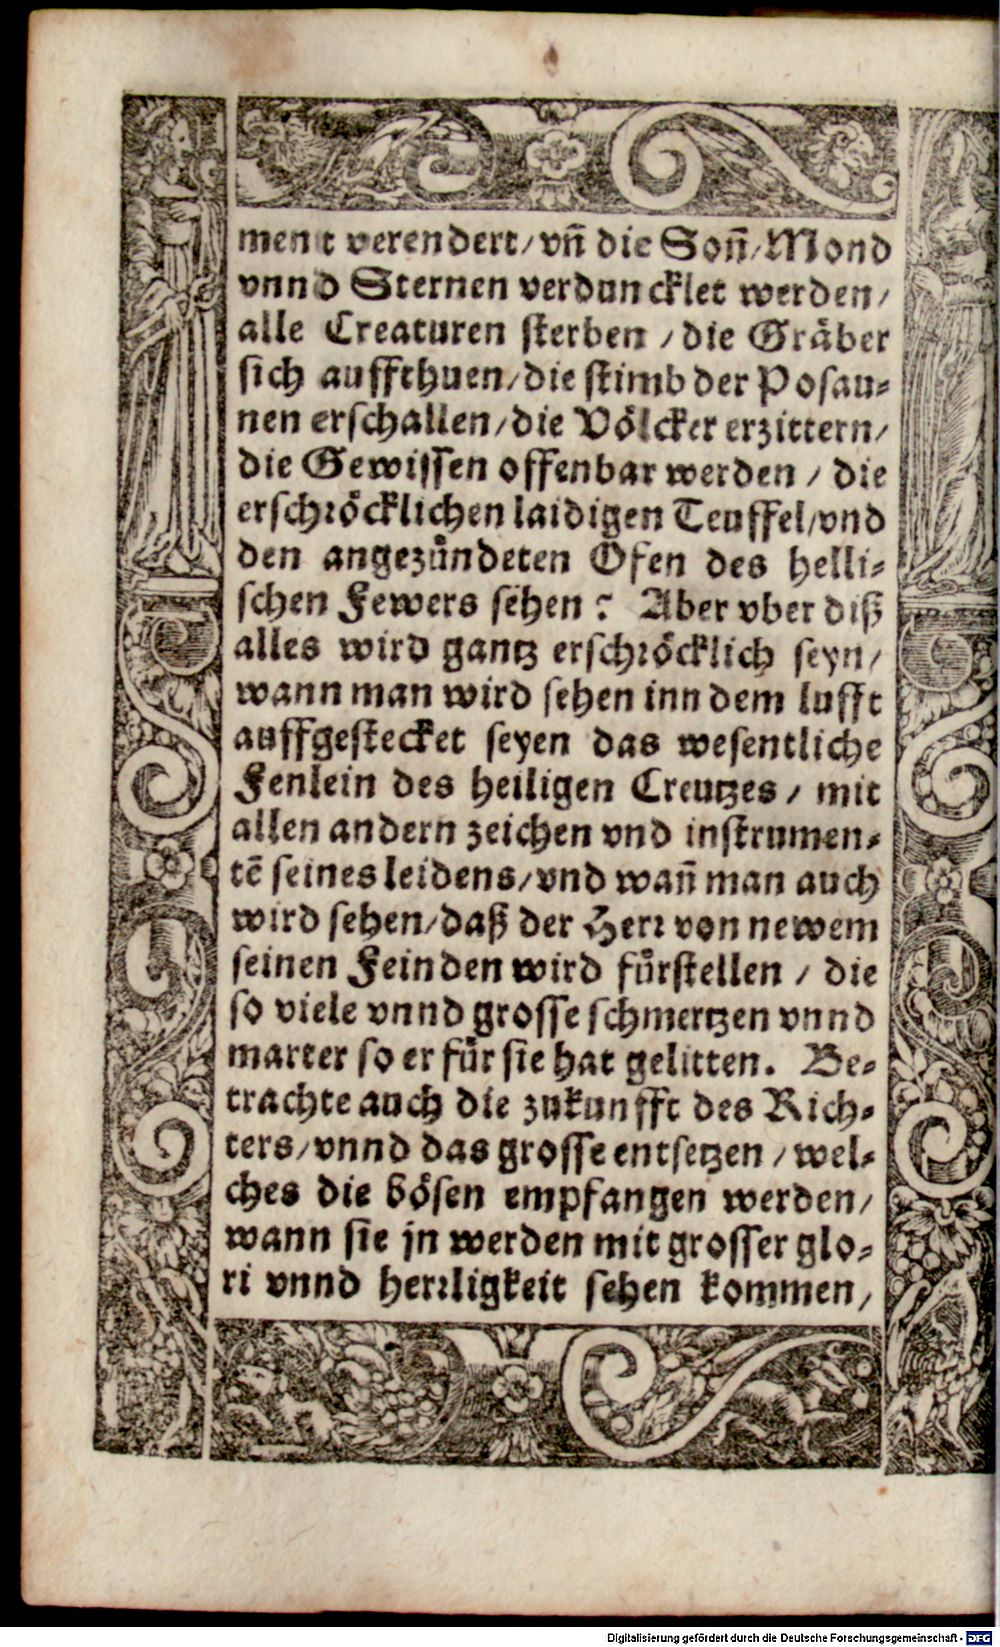 ment verendert/ vn̄ die Son̄/ Mond
vnnd Sternen verduncklet werden/
alle Creaturen sterben / die Gräber
sich auffthuen/ die stimb der Posau-
nen erschallen/ die Völcker erzittern/
die Gewissen offenbar werden / die
erschröcklichen laidigen Teuffel/ vnd
den angezündeten Ofen des helli-
schen Fewers sehen? Aber vber diß
alles wird gantz erschröcklich seyn/
wann man wird sehen inn dem lufft
auffgestecket seyen das wesentliche
Fenlein des heiligen Creutzes / mit
allen andern zeichen vnd instrumen-
tē seines leidens/ vnd wan̄ man auch
wird sehen/ daß der Herr von newem
seinen Feinden wird fürstellen / die
so viele vnnd grosse schmertzen vnnd
marter so er für sie hat gelitten. Be-
trachte auch die zukunfft des Rich-
ters/ vnnd das grosse entsetzen / wel-
ches die bösen empfangen werden/
wann sie jn werden mit grosser glo-
ri vnnd herrligkeit sehen kommen/
Digitalisierung gefördert durch die Deutsche Forschungsgemeinschaft - DFG